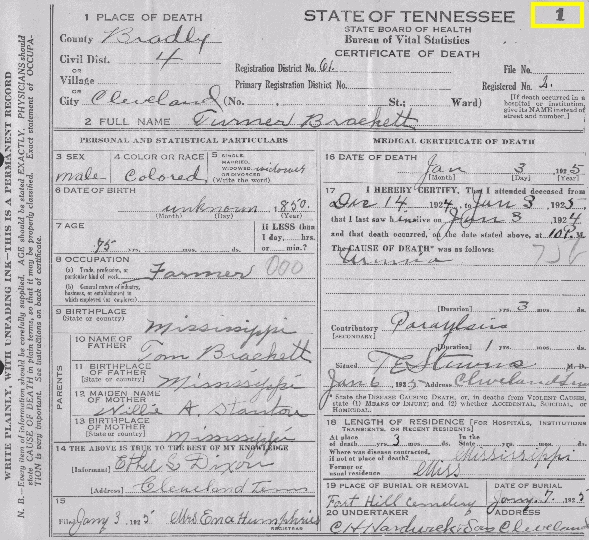 1 PLACE OF DEATH
STATE OF TENNESSEE
1
County Bradly
STATE BOARD OF HEALTH
Bureau of Vital Statistics
Civil Dist. 4
CERTIFICATE OF DEATH
OR
Village
Registration District No. 61
File No.
OR
Primary Registration District No.
Registered No. 2.
City Cleveland (No. St.; Ward)
(If death occurred in a hospital or institution, give its NAME instead of street and number.)
2 FULL NAME Turner Brackett
PERSONAL AND STATISTICAL PARTICULARS
3 SEX
male
4 COLOR OR RACE
Colored
5 SINGLE, MARRIED, WIDOWED, OR DIVORCED (Write the word)
widower
6 DATE OF BIRTH
unknown 1850
(Month) (Day) (Year)
7 AGE
75 yrs. mos. ds.
If LESS than
1 day, hrs.
or min.?
8 OCCUPATION
(a) Trade, profession, or particular kind of work Farmer 000
(b) General nature of industry, business, or establishment in which employed (or employer)
9 BIRTHPLACE
(State or country) Mississippi
PARENTS
10 NAME OF FATHER Tom Brackett
11 BIRTHPLACE OF FATHER
[State or country] Mississippi
12 MAIDEN NAME OF MOTHER Willie A. Stanton
13 BIRTHPLACE OF MOTHER
(State or country) Mississippi
14 THE ABOVE IS TRUE TO THE BEST OF MY KNOWLEDGE
(Informant) Ethel L Dixon
[Address] Cleveland Tenn
15
Filed Jany 3 1925 Mrs Ema Humphries
REGISTRAR
MEDICAL CERTIFICATE OF DEATH
16 DATE OF DEATH
Jan 3 1925
[Month] (Day) [Year]
17 I HEREBY CERTIFY, That I attended deceased from
Dec 14 1924, to Jan 3 1925
that I last saw h alive on Jan 3 1924
and that death occurred, on the date stated above, at 10 P. m
The CAUSE OF DEATH* was as follows:
Uremia
[Duration] yrs. 3 mos. ds.
Contributory Paralysis
[SECONDARY]
[Duration] 1 yrs. mos. ds.
Signed M. D.
Jan 6 1925 Address Cleveland
State the DISEASE CAUSING DEATH, or, in deaths from VIOLENT CAUSES, state (1) MEANS OF INJURY; and (2) whether ACCIDENTAL, SUICIDAL, or HOMICIDAL.
18 LENGTH OF RESIDENCE [FOR HOSPITALS, INSTITUTIONS
TRANSIENTS, OR RECENT RESIDENTS]
At place of death 3 yrs. mos. ds.
In the
Where was disease contracted, if not at place of death? Mississippi
Former or usual residence Miss
19 PLACE OF BURIAL OR REMOVAL
Fort Hill Cemetery
DATE OF BURIAL
Jany. 7. 1925
20 UNDERTAKER
ADDRESS
C H Hardwick Son Cleveland
WRITE PLAINLY, WITH UNFADING INK—THIS IS A PERMANENT RECORD
N. B. Every item of information should be carefully supplied. AGE should be stated EXACTLY. PHYSICIANS should state CAUSE OF DEATH in plain terms, so that it may be properly classified. Exact statement of OCCUPATION is very important. See instructions on back of certificate.